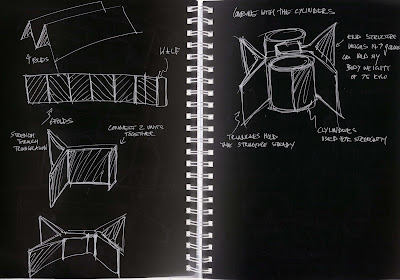 4 FOLDS
HALF
6 FOLDS
STRENGTH
THROUGH
TRIANGULATION
CONNECT 2 UNITS
TOGETHER
COMBINE WITH THE CYLINDERS
END STRUCTURE
WEIGHS
CAN HOLD MY
BODY WEIGHT
OF 75 KILO
TRIANGLES HOLD
THE STRUCTURE STEADY
CYLINDERS
USED FOR STRENGTH